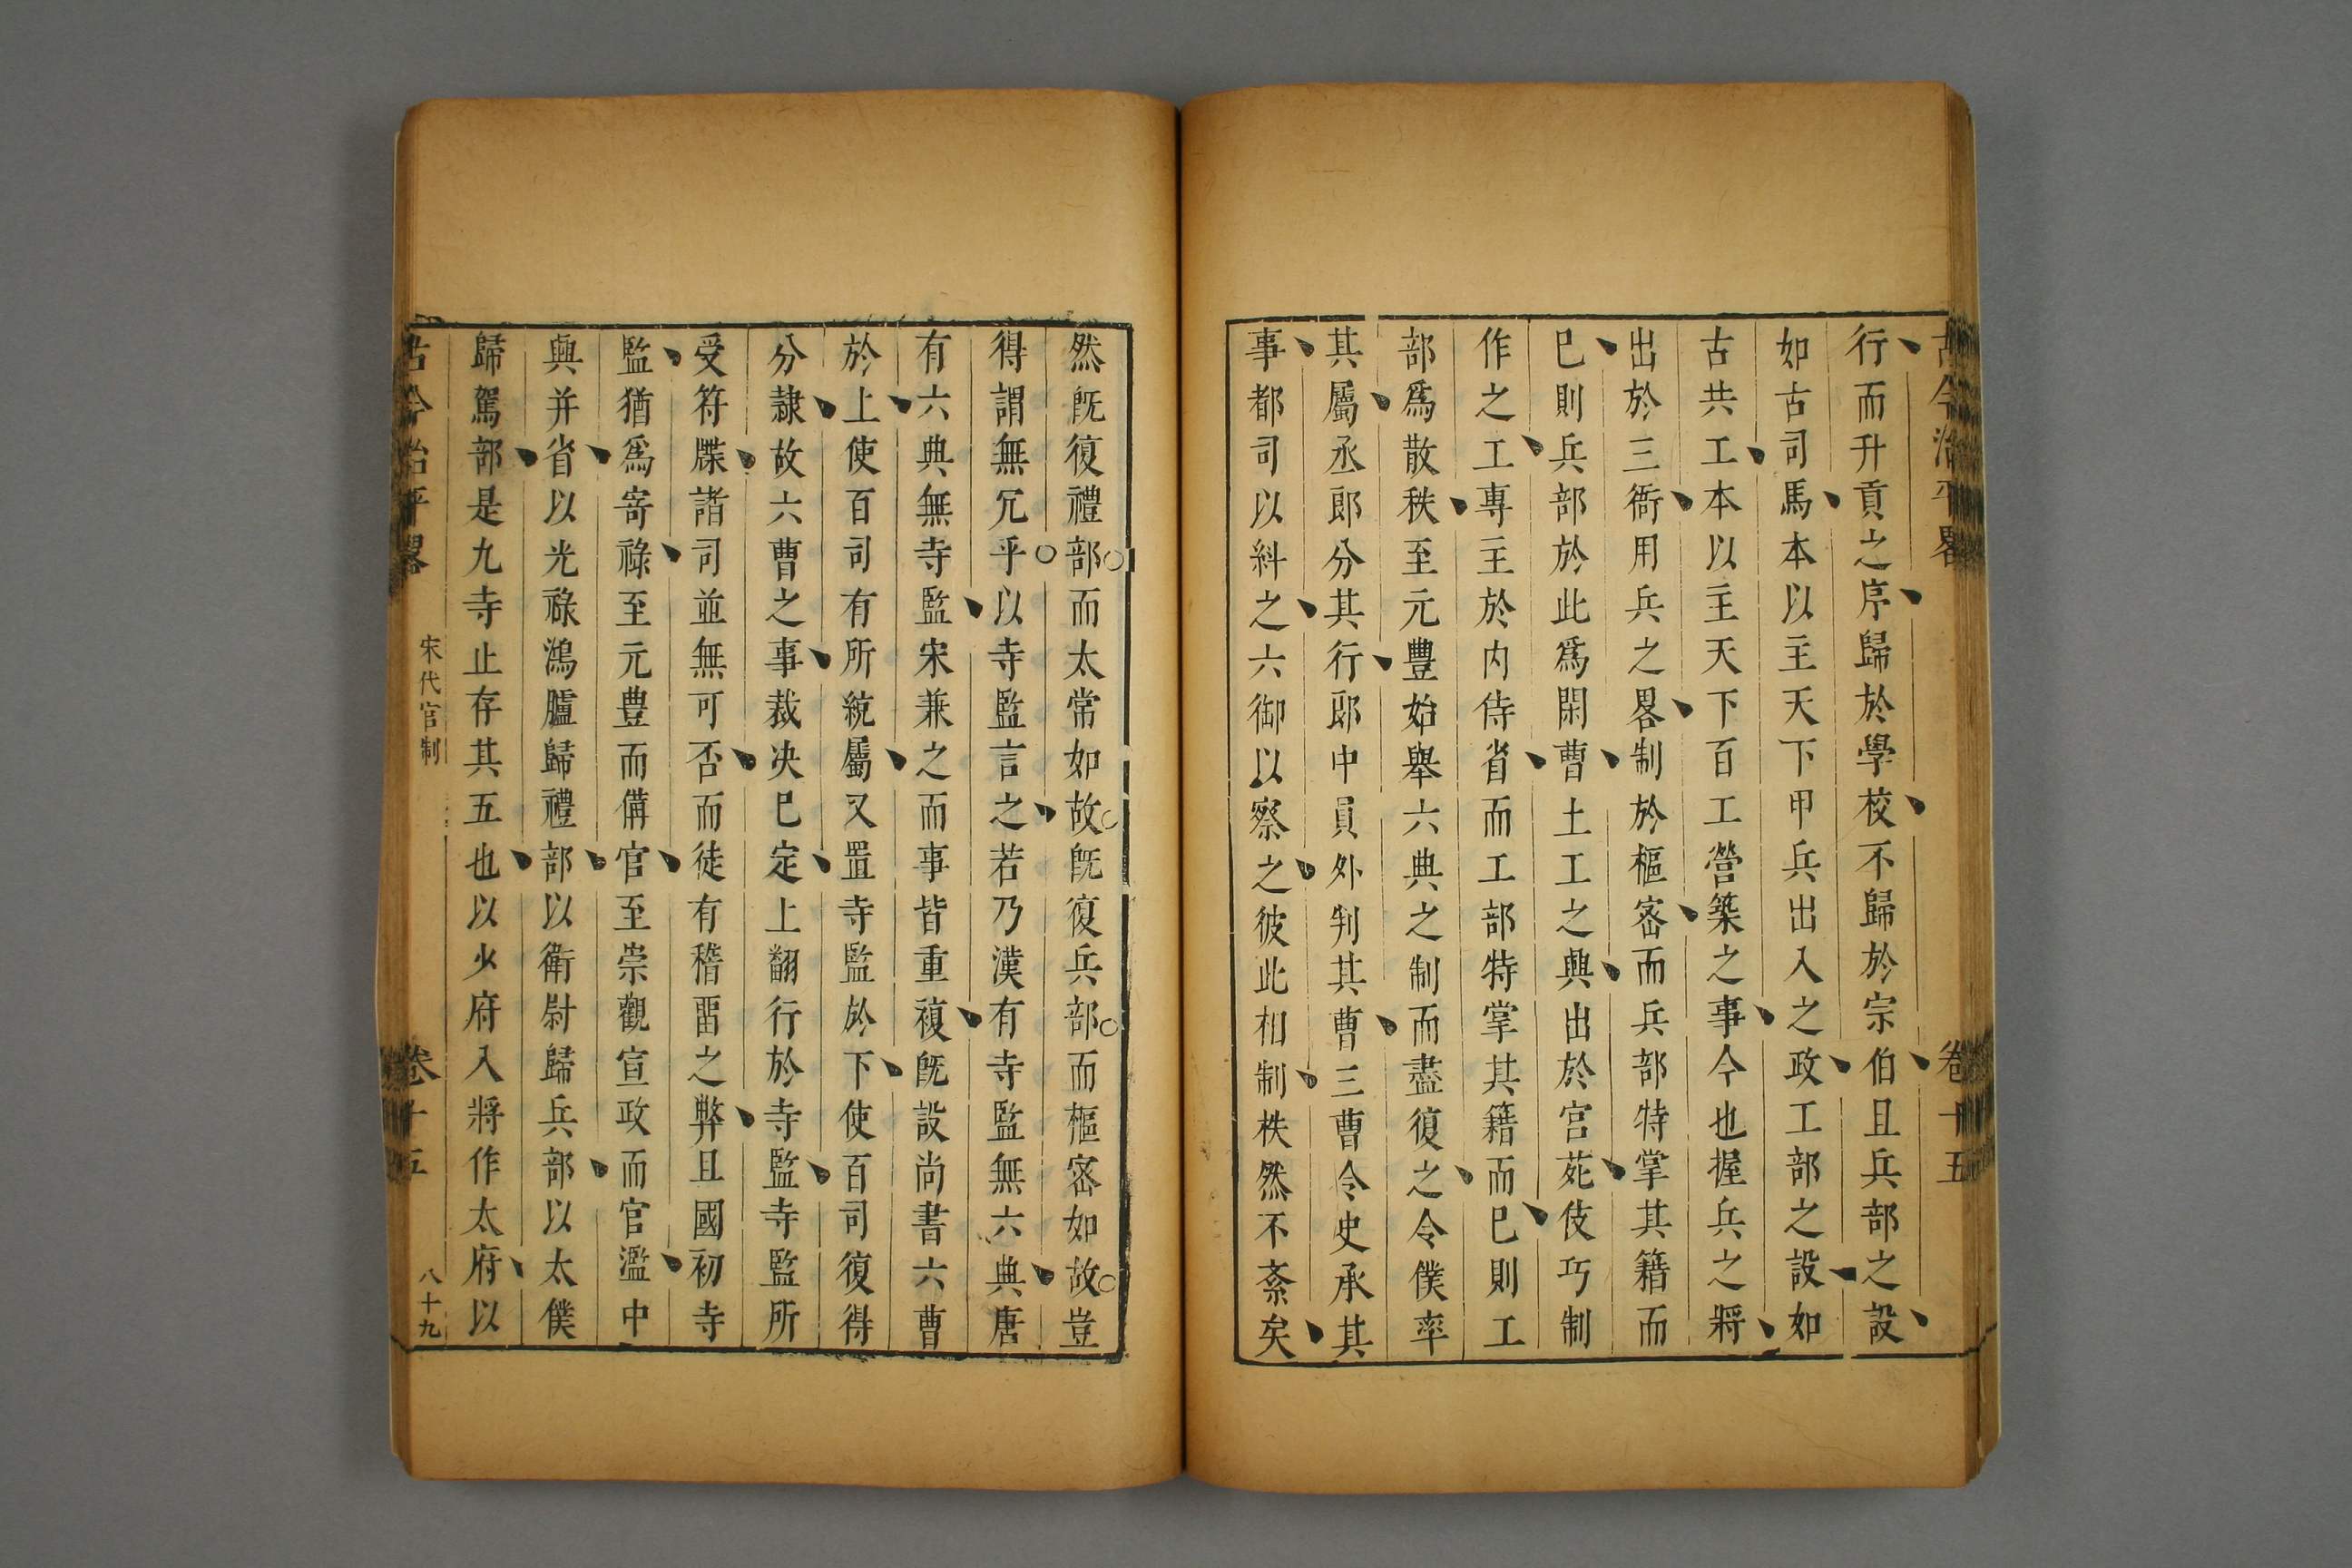 古今治平畧 卷十五
行而升貢之序歸於學校不歸於宗伯且兵部之設
如古司馬本以主天下甲兵出入之政工部之設如
古共工本以主天下百工營築之事今也握兵之將
出於三衙用兵之畧制於樞密而兵部特掌其籍而
巳則兵部於此爲閑曹土工之興出於宮苑伎巧制
作之工專主於内侍省而工部特掌其籍而巳則工
部爲散秩至元豐始舉六典之制而盡復之令僕率
其屬丞郎分其行郎中員外判其曹三曹令史承其
事都司以糾之六御以察之彼此相制秩然不紊矣
然旣復禮部而太常如故旣復兵部而樞密如故豈
得謂無冗乎以寺監言之若乃漢有寺監無六典唐
有六典無寺監宋兼之而事皆重複旣設尚書六曹
於上使百司有所統屬又置寺監於下使百司復得
分隷故六曹之事裁决巳定上翻行於寺監寺監所
受符牒諸司並無可否而徒有稽畱之弊且國初寺
監猶爲寄祿至元豊而備官至崇觀宣政而官濫中
興并省以光祿鴻臚歸禮部以衛尉歸兵部以太僕
歸駕部是九寺止存其五也以少府入將作太府以
古今治平畧 宋代官制 卷十五 八十九